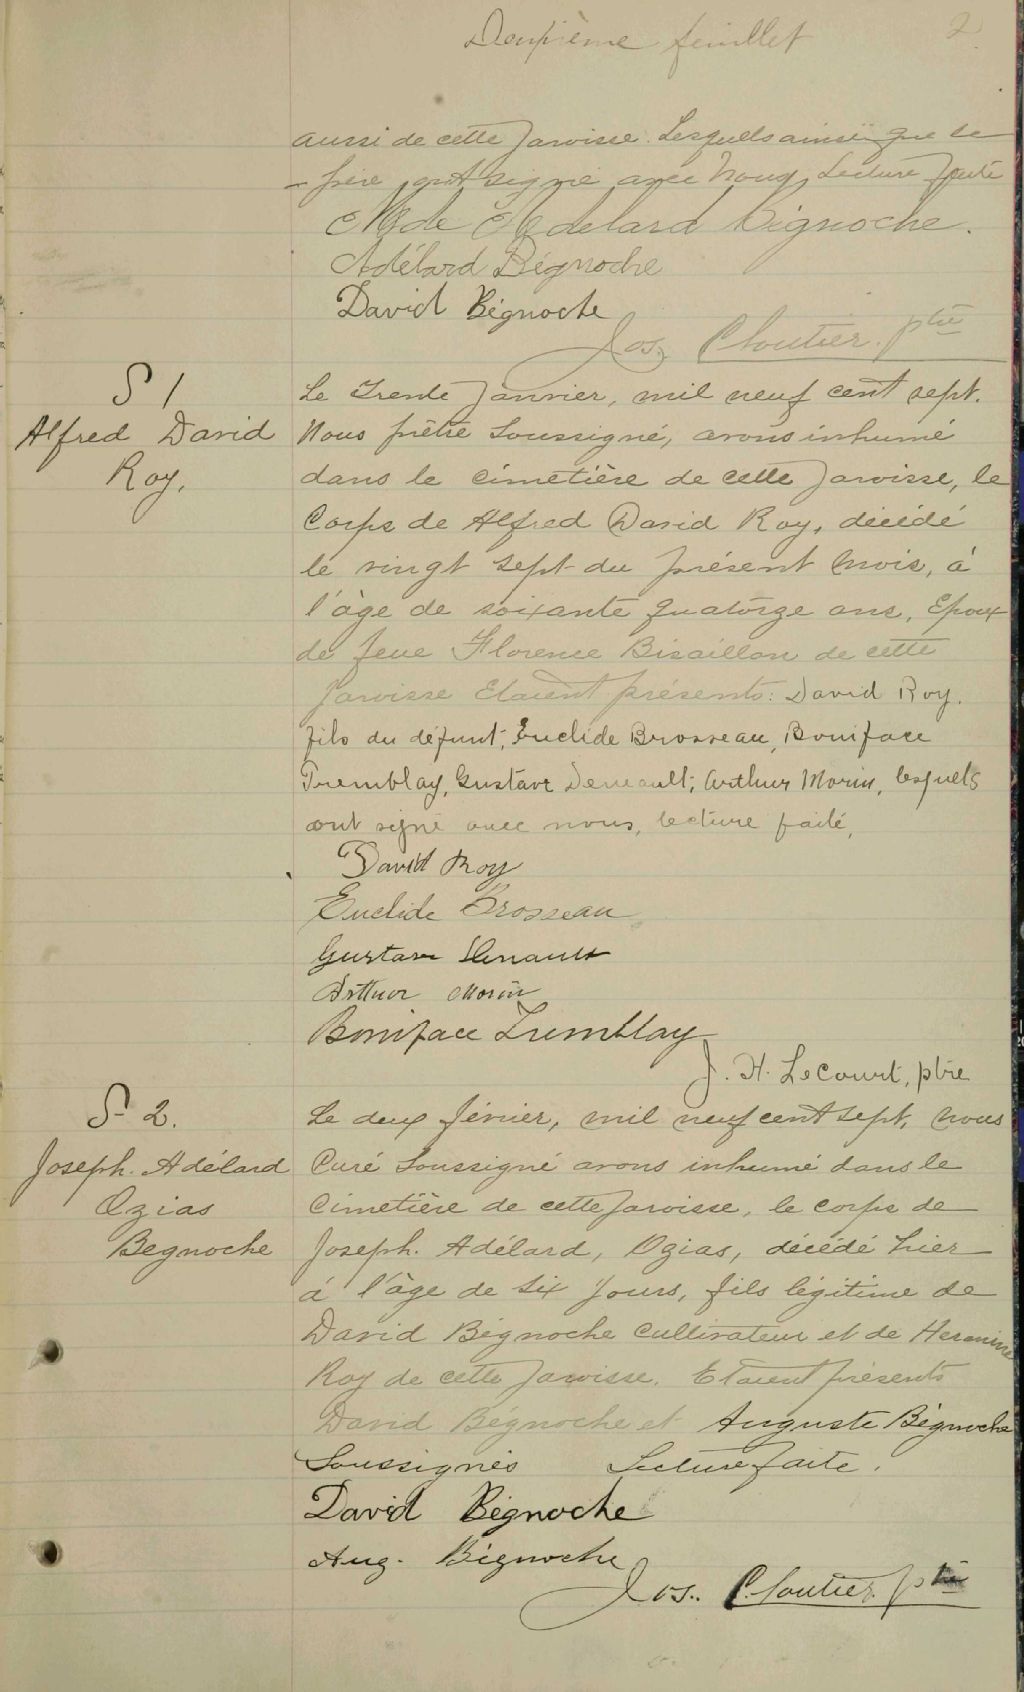 Deuxième feuillet 2
aussi de cette paroisse. Lesquels ainsi que le
père ont signé avec nous, Lecture faite
Mde Adelard Bégnoche.
Adélard Bégnoche
David Bégnoche
Jos. Cloutier. ptre
S 1
Alfred David
Roy.
Le trente Janvier, mil neuf cent sept.
Nous prêtre soussigné, avons inhumé
dans le cimetière de cette paroisse, le
Corps de Alfred David Roy, décédé
le vingt sept du présent mois, à
l'âge de soixante quatorze ans, Epoux
de feue Florence Bisaillon de cette
paroisse Etaient présents: David Roy.
fils du défunt, Euclide Brosseau, Boniface
Tremblay, Gustave Deneault, Arthur Morin, lesquels
ont signé avec nous, lecture faite,
David Roy
Euclide Brosseau
Gustave Denault
Arthur Morin
Boniface Tremblay
J. H. Lecourt, ptre
S 2.
Joseph. Adélard
Ozias
Begnoche
Le deux février, mil neuf cent sept, nous
Curé soussigné avons inhumé dans le
Cimetière de cette paroisse, le corps de
Joseph. Adélard, Ozias, décédé hier
à l'âge de six jours, fils légitime de
David Bégnoche cultivateur et de Hermine
Roy de cette paroisse. Etaient présents
David Bégnoche et Auguste Bégnoche
Soussignés Lecture faite.
David Bégnoche
Aug. Bégnoche
Jos. Cloutier. ptre